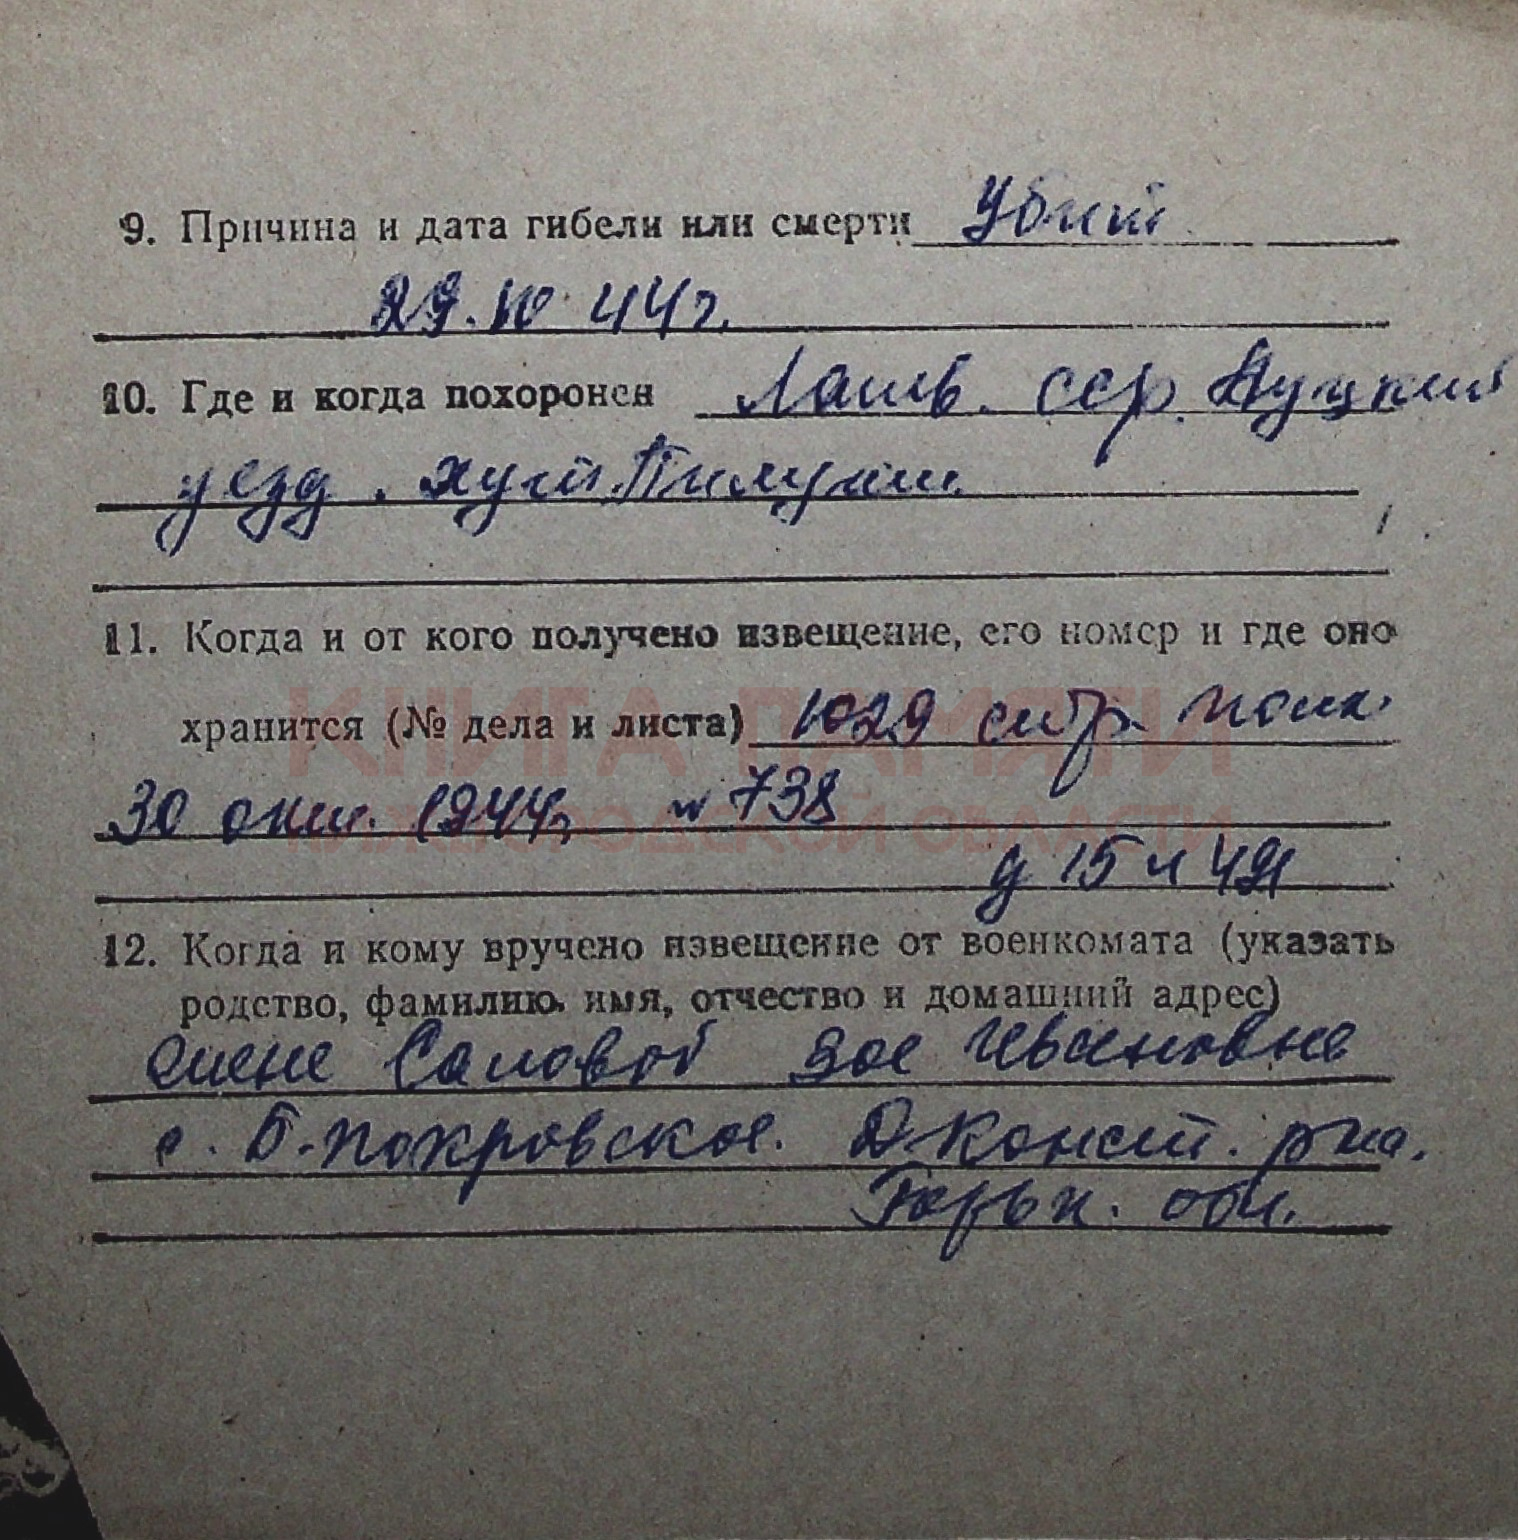 9. Причина и дата гибели или смерти Убит
29.10 44г.
10. Где и когда похоронен Латв. сср.
уезд. хут.
11. Когда и от кого получено извещение, его номер и где оно
хранится (№ дела и листа) 1029 стр. полк.
КНИГА ПАМЯТИ
30 окт. 1944г. № 738
НИЖЕГОРОДСКОЙ ОБЛАСТИ
д 15 л
12. Когда и кому вручено извещение от военкомата (указать
родство, фамилию, имя, отчество и домашний адрес)
жене Саловой Зое Ивановне
с. Б. Покровское. Д. Конст. р-на.
Горьк. обл.